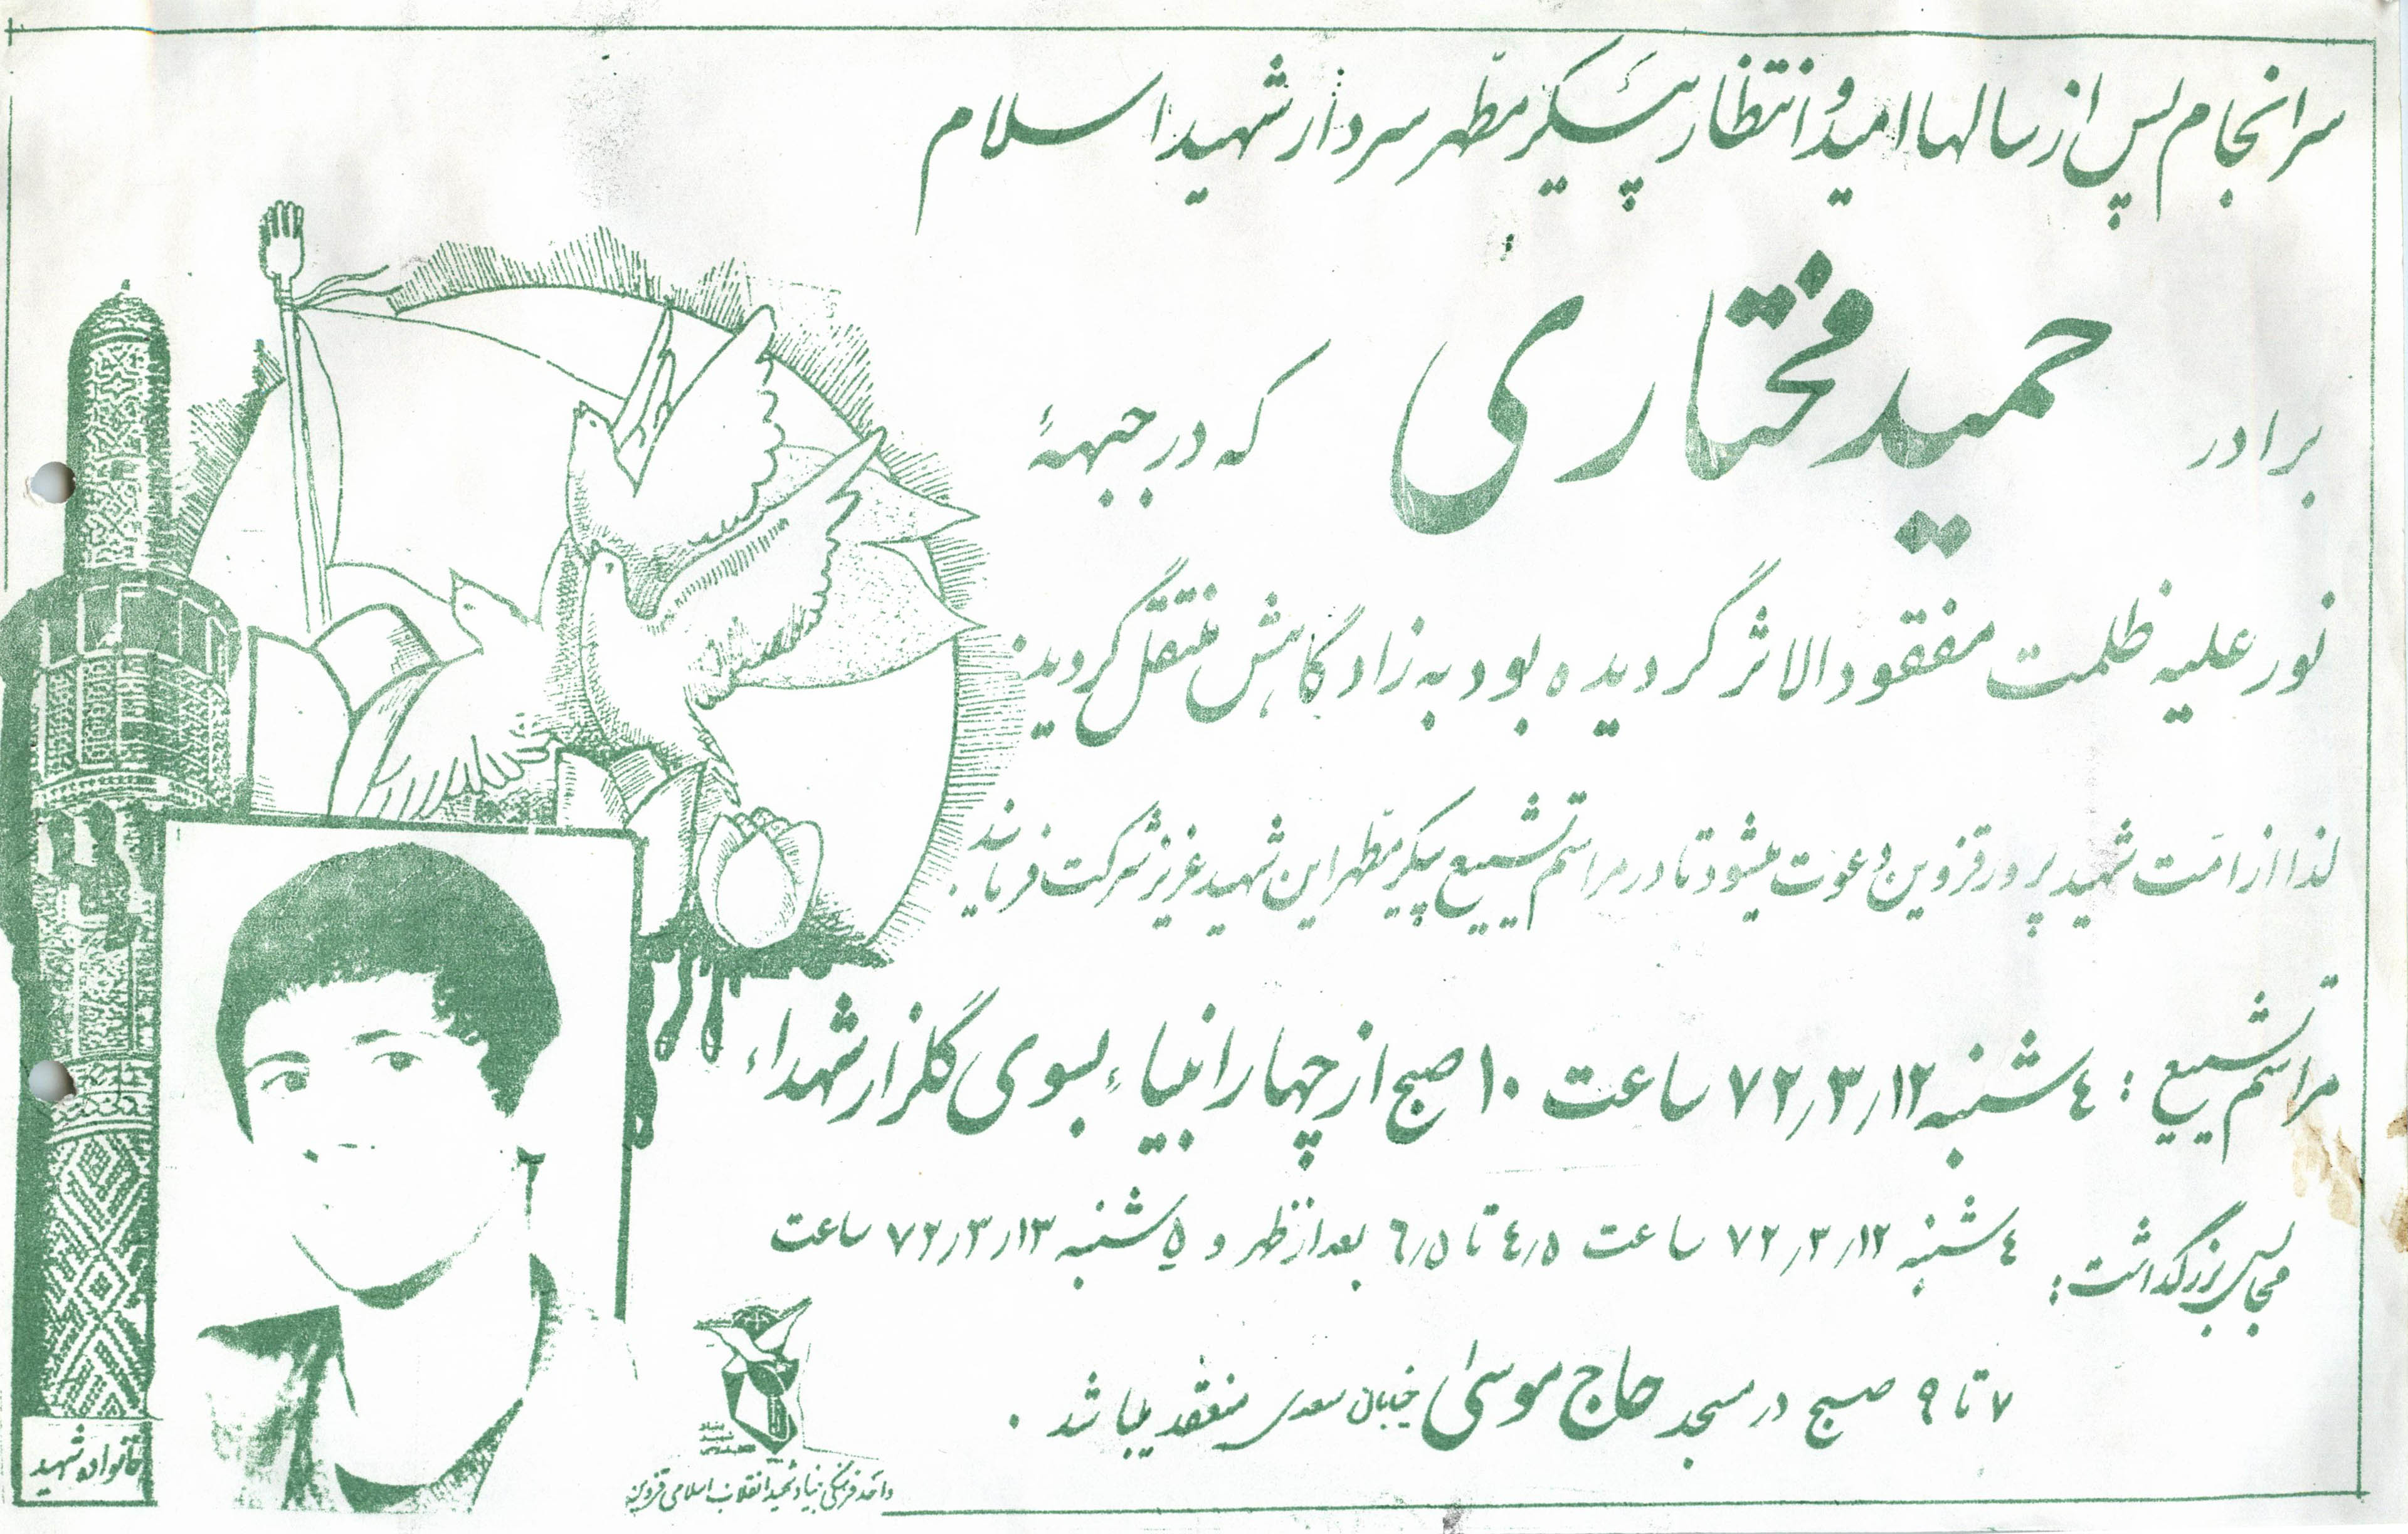 سرانجام پس از سالها امید و انتظار پیکر مطّهر سردار شهید اسلام
برادر حمید مختاری که در جبههٔ
نور علیه ظلمت مفقودالاثر گردیده بود به زادگاهش منتقل گردید.
لذا از امّت شهید پرور قزوین دعوت میشود تا در مراسم تشییع پیکر مطّهر این شهید عزیز شرکت فرمایند.
مراسم تشییع : ٤شنبه ۷۲٫۳٫۱۲ ساعت ۱۰ صبح از چهار انبیاء بسوی گلزار شهداء
مجالس بزرگداشت: ٤شنبه ۷۲٫۳٫۱۲ ساعت ٤٫۵ تا ٦٫۵ بعدازظهر و ۵شنبه ۷۲٫۳٫۱۳ ساعت
۷ تا ۹ صبح در مسجد حاج موسیٰ خیابان سعدی منعقد میباشد .
خانواده شهید
واحد فرهنگی بنیاد شهید انقلاب اسلامی قزوین